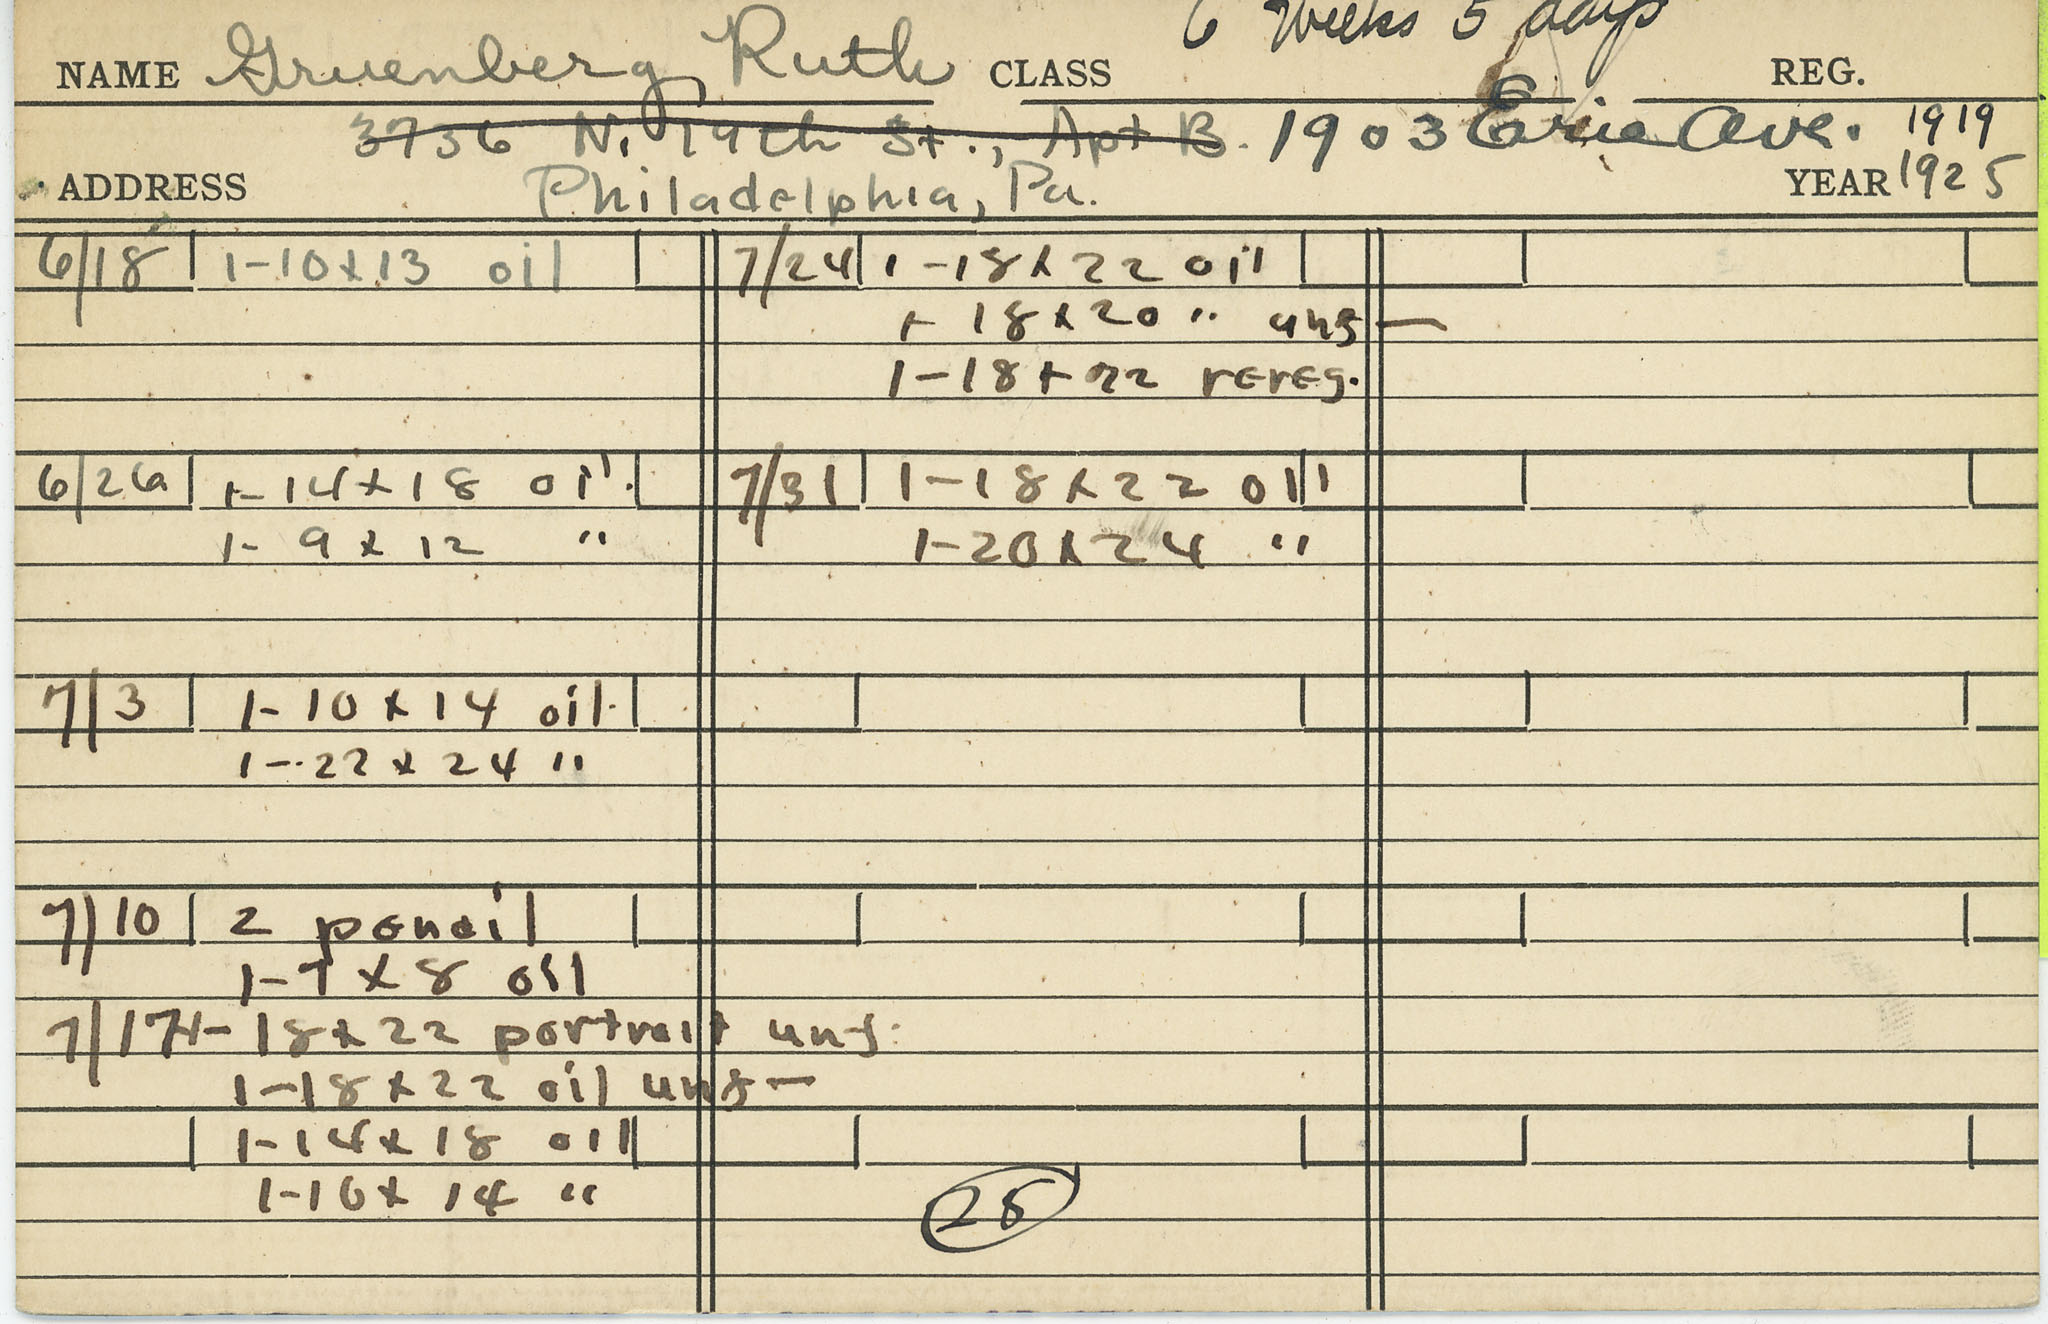 6 Weeks 5 days
NAME Gruenberg, Ruth CLASS REG.
3736 N. 19th St., Apt B. 1903 Erie Ave. 1919
ADDRESS Philadelphia, Pa. YEAR 1925
6/18 1-10x13 oil
6/26 1-14x18 oil.
1-9x12 "
7/3 1-10x14 oil.
1-22x24 "
7/10 2 pencil
1-7x8 oil
7/17 1-18x22 portrait unf.
1-18x22 oil unf-
1-14x18 oil
1-10x14 "
7/24 1-18x22 oil
1-18x20 " unf-
1-18x22 rereg.
7/31 1-18x22 oil
1-20x24 "
28